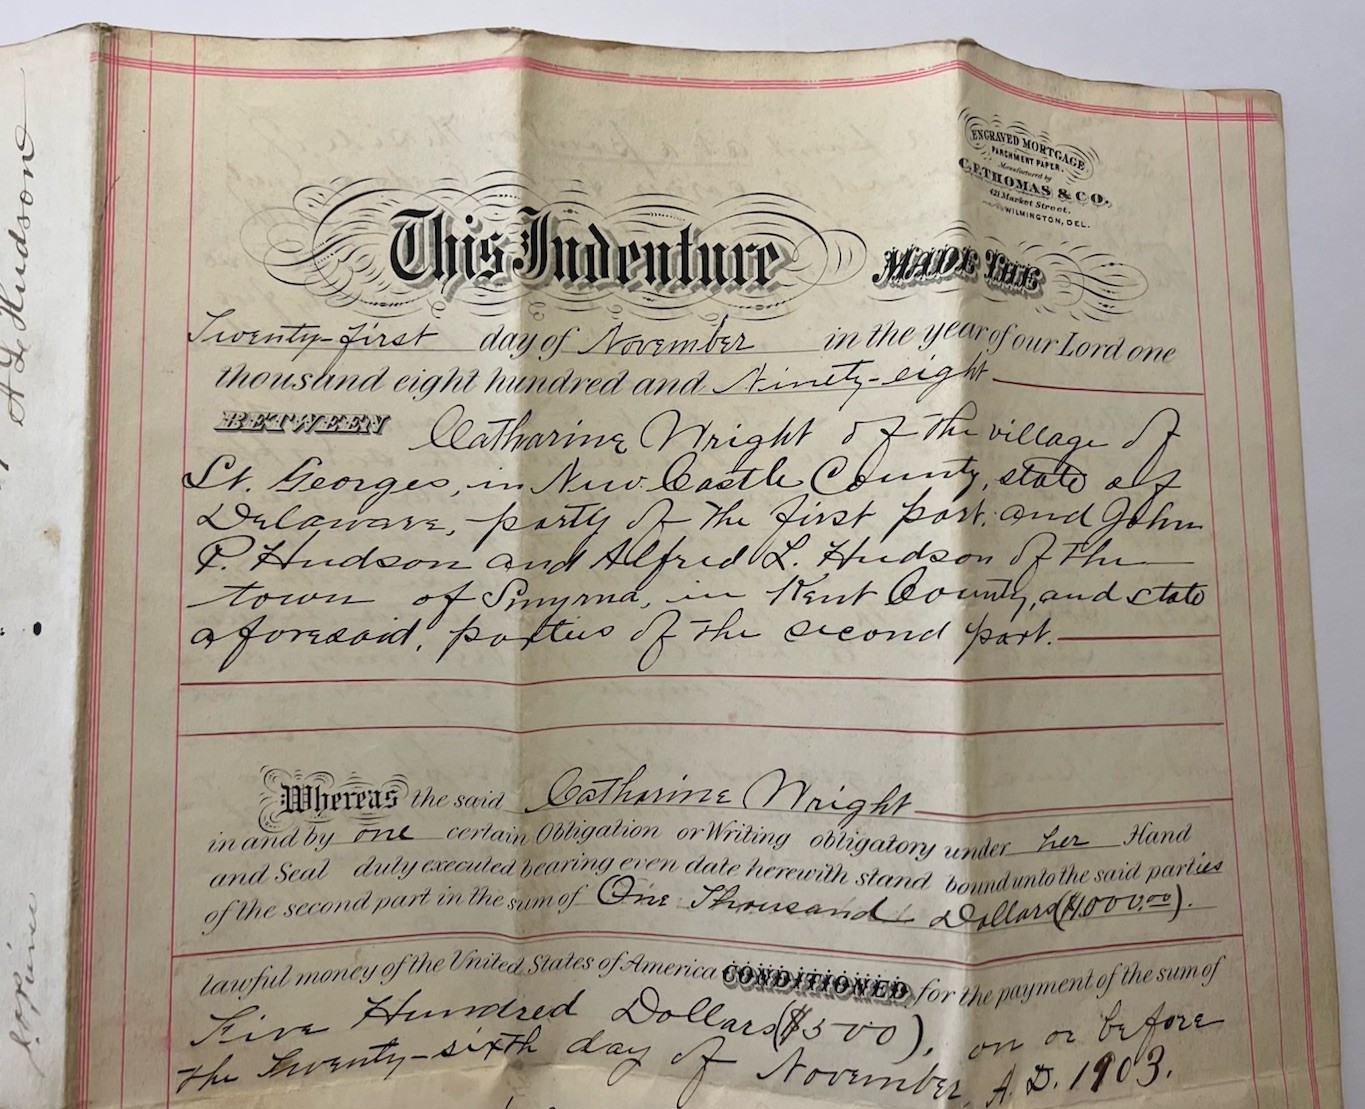 A L Hudson
ENGRAVED MORTGAGE
PARCHMENT PAPER.
Manufactured by
C.F. THOMAS & CO.
421 Market Street,
WILMINGTON, DEL.
This Indenture MADE THE
Twenty-first day of November in the year of our Lord one
thousand eight hundred and Ninety-eight
BETWEEN Catharine Wright of the village of
St. Georges, in New Castle County, state of
Delaware, party of the first part, and John
P. Hudson and Alfred L. Hudson of the
town of Smyrna, in Kent County, and state
aforesaid, parties of the second part.
Whereas the said Catharine Wright
in and by one certain Obligation or Writing obligatory under her Hand
and Seal duly executed bearing even date herewith stand bound unto the said parties
of the second part in the sum of One Thousand Dollars ($1,000.00).
lawful money of the United States of America CONDITIONED for the payment of the sum of
Five Hundred Dollars ($500), on or before
the Twenty-sixth day of November, A.D. 1903.